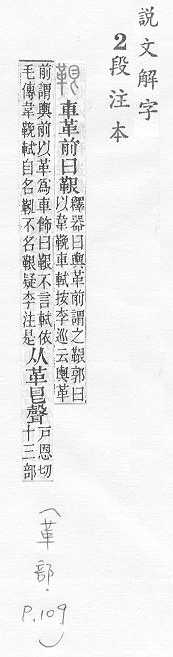 説文解字
2段注本
䩤車革前曰䩤釋器曰輿革前謂之䩤郭曰
以韋鞔車軾按李巡云輿革
前謂輿前以革爲車飾曰䩤不言軾依
毛傳韋鞔軾自名鞃不名䩤疑李注是从革㫐聲戸恩切
十三部
(革部.P.109)